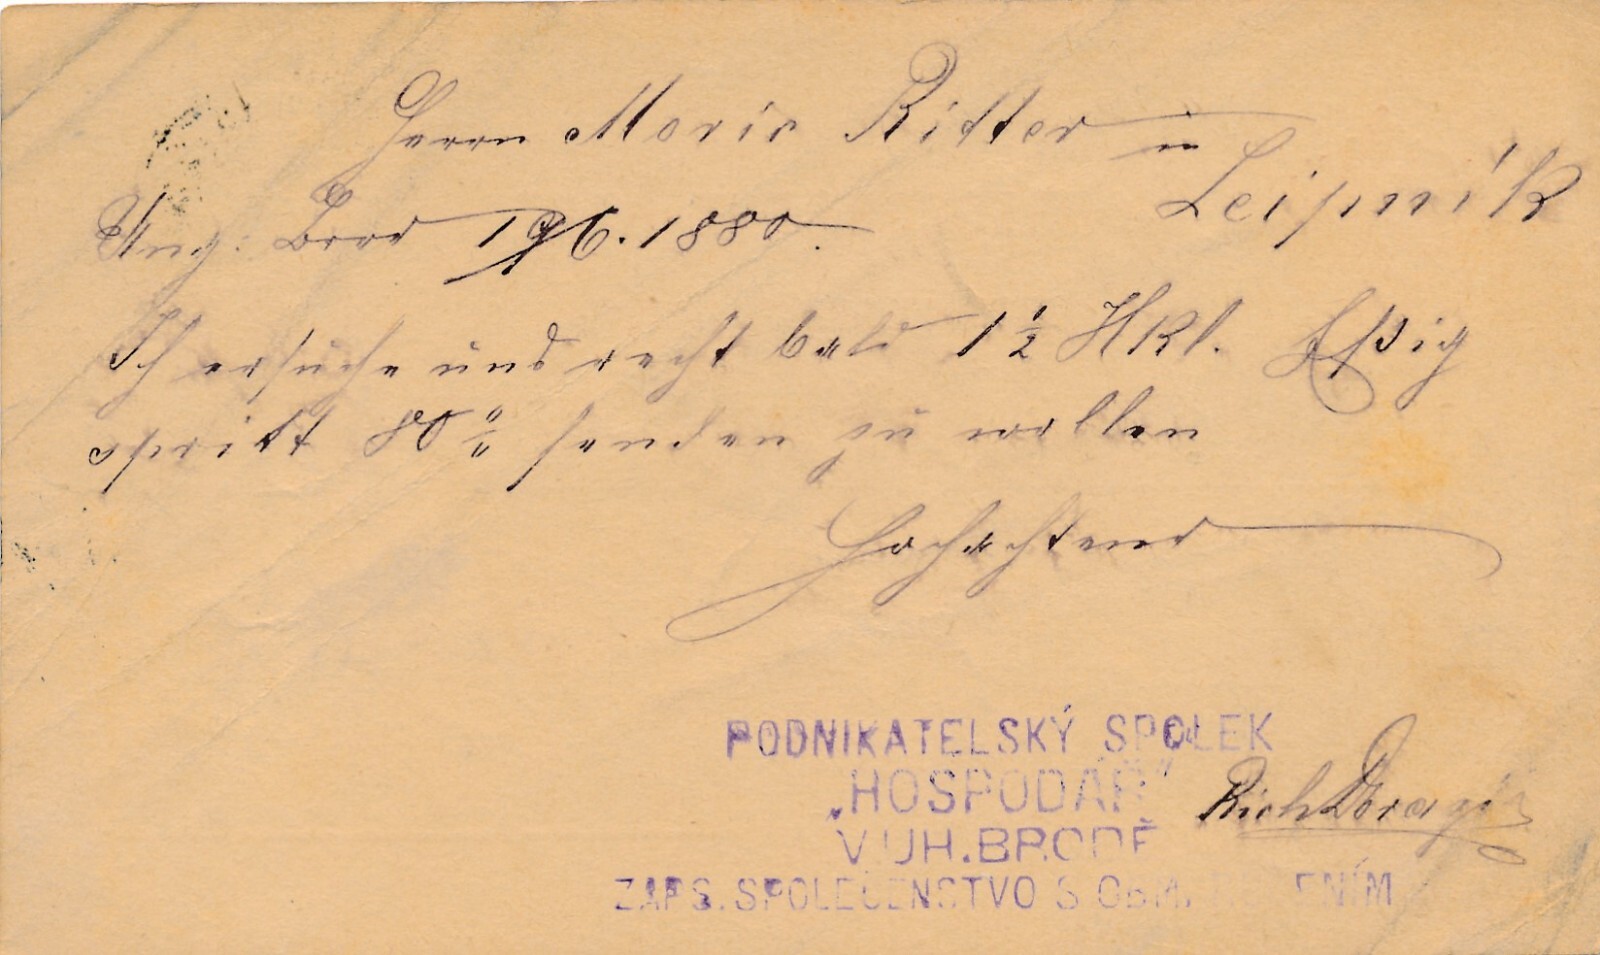 Herrn Moric Ritter in
Leipnik
Ung: Brod 19/6. 1880.
Ich ersuche und recht bald 1½ Hkl. Eßig
spritt 80 % senden zu wollen
Hochachtend
PODNIKATELSKÝ SPOLEK
„HOSPODÁŘ"
V UH. BRODĚ
Rich
ZAPS. SPOLEČENSTVO S OBM. ENÍM